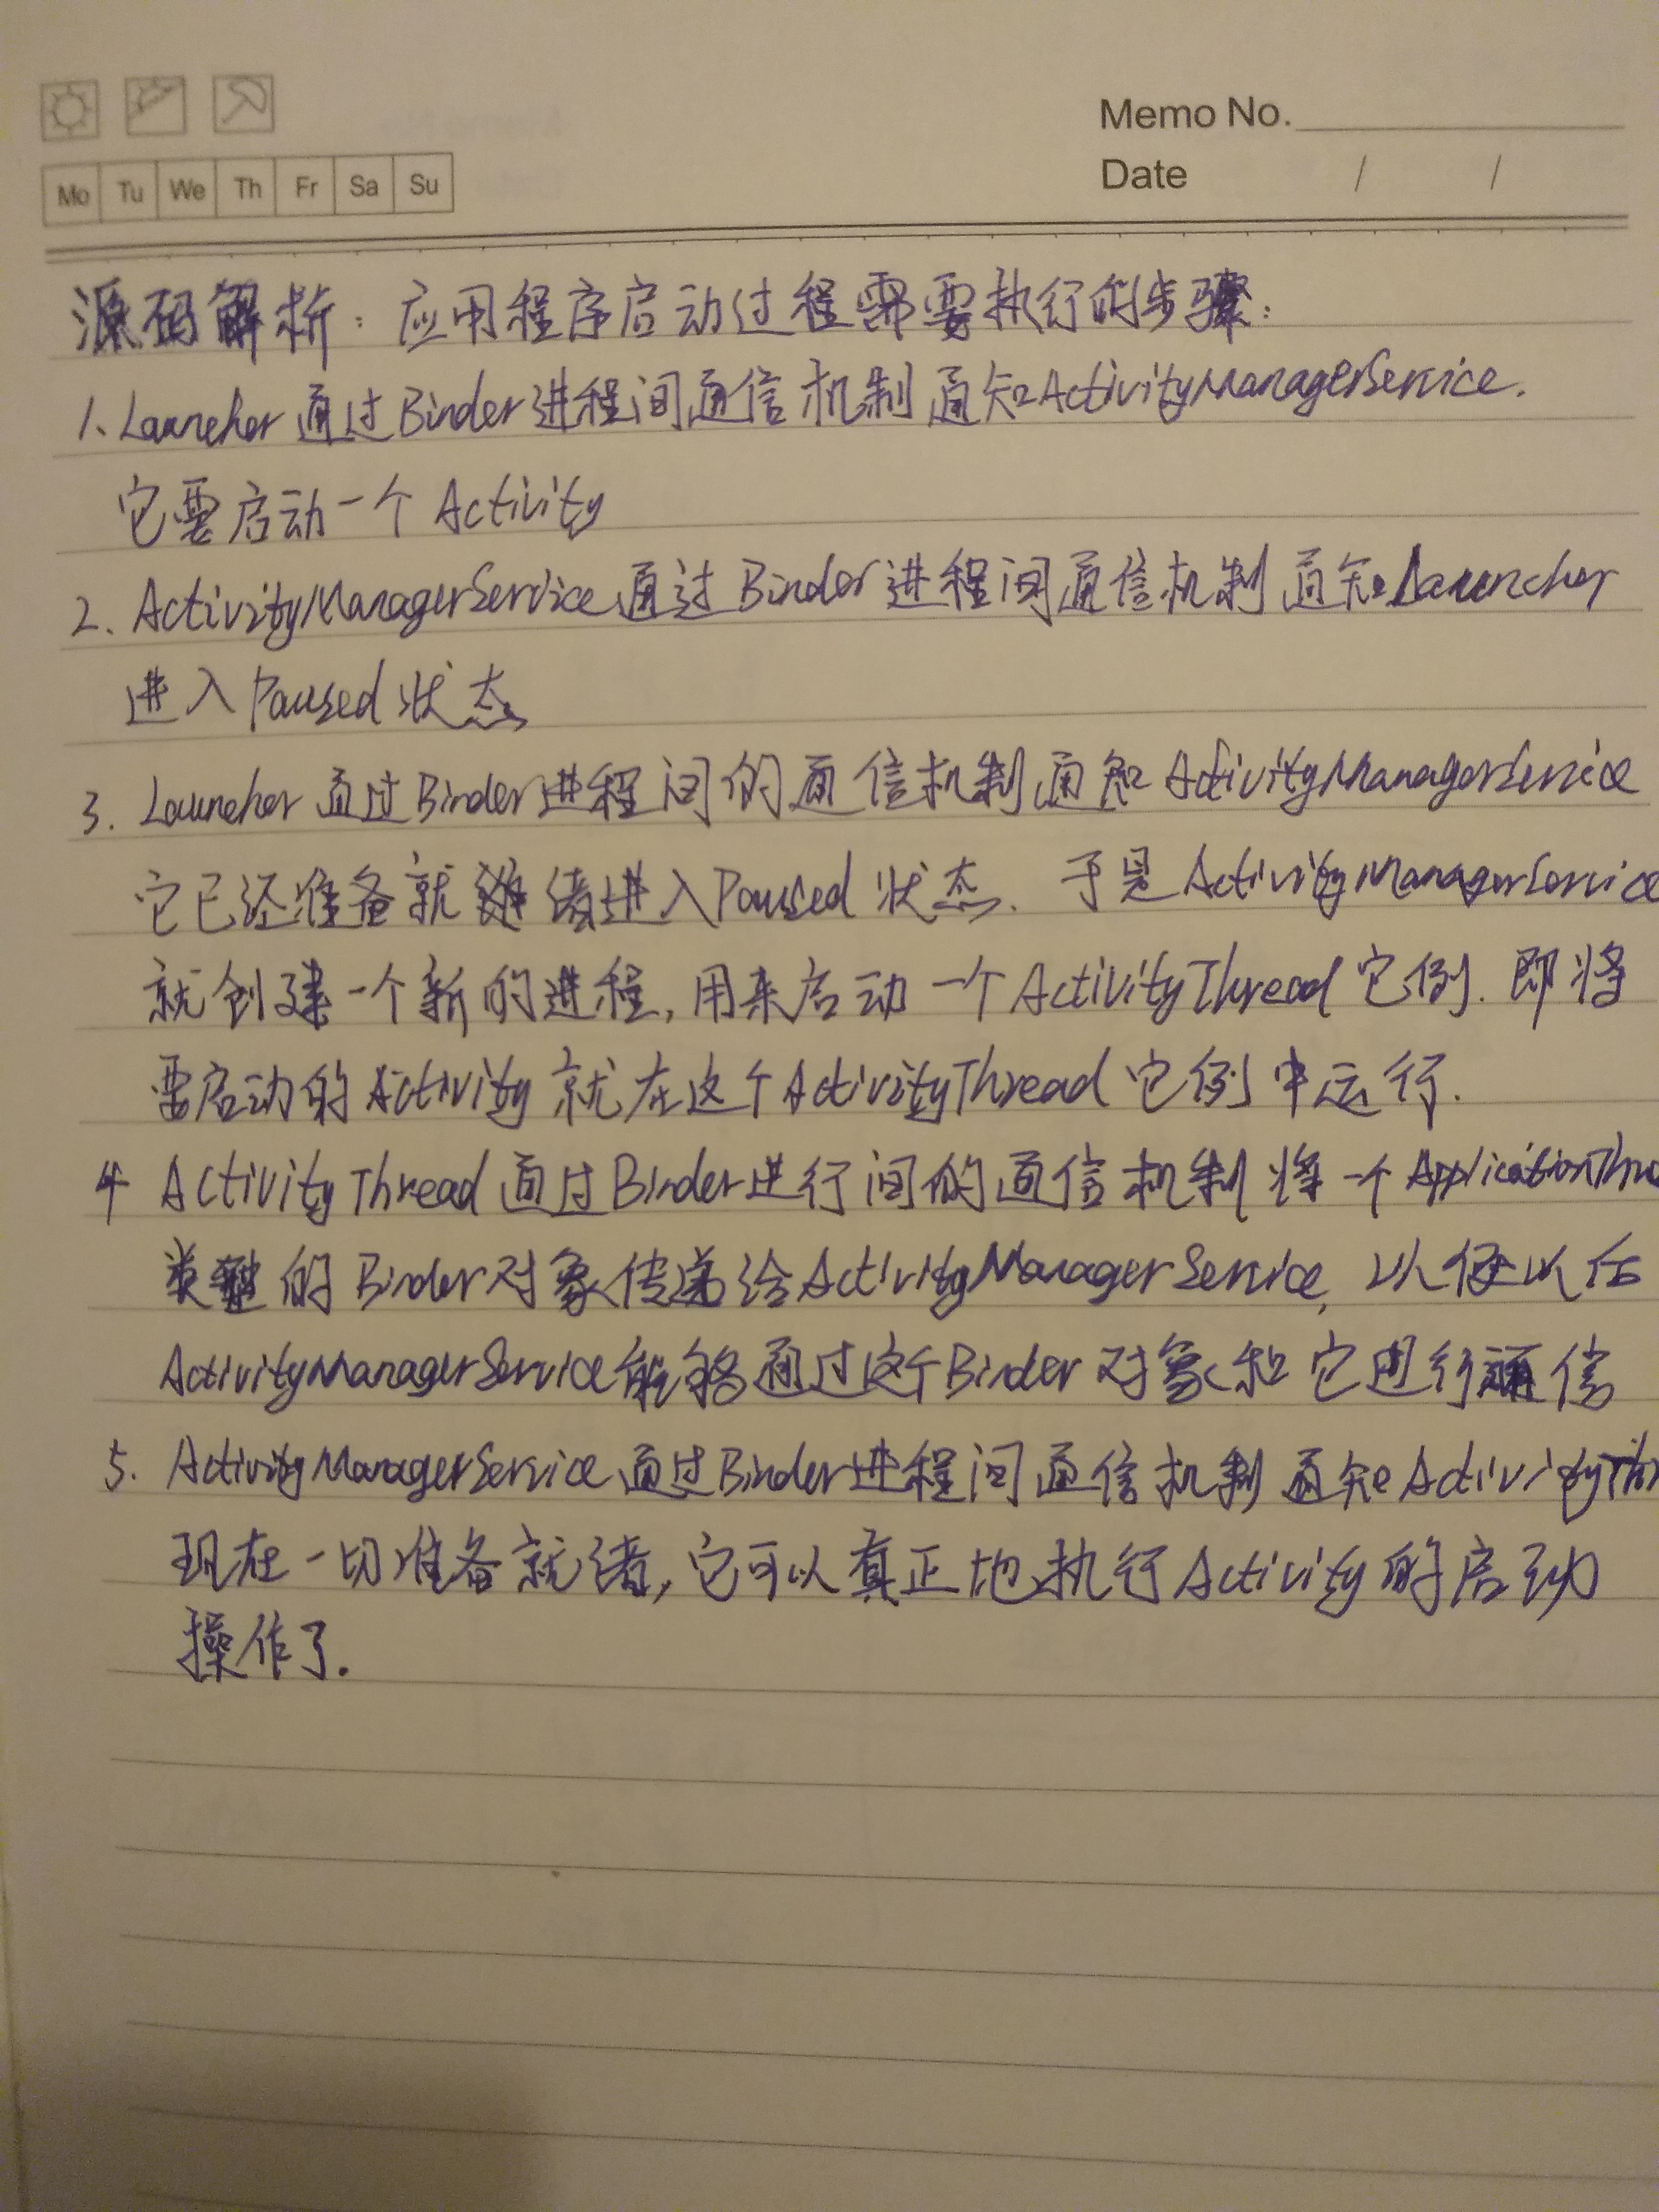 Memo No.
Date / /
Mo Tu We Th Fr Sa Su
源码解析：应用程序启动过程需要执行的步骤：
1. Launcher 通过 Binder 进程间通信机制通知 ActivityManagerService.
它要启动一个 Activity
2. ActivityManagerService 通过 Binder 进程间通信机制通知 Launcher
进入 Paused 状态
3. Launcher 通过 Binder 进程间的通信机制通知 ActivityManagerService
它已经准备就绪进入 Paused 状态. 于是 ActivityManagerService
就创建一个新的进程, 用来启动一个 ActivityThread 它例. 即将
要启动的 Activity 就在这个 ActivityThread 它例中运行.
4 ActivityThread 通过 Binder 进行间的通信机制将一个 ApplicationThre
类型的 Binder 对象传递给 ActivityManagerService, 以便以后
ActivityManagerService 能够通过这个 Binder 对象和它进行通信
5. ActivityManagerService 通过 Binder 进程间通信机制通知 ActivityThr
现在一切准备就绪, 它可以真正地执行 Activity 的启动
操作了.